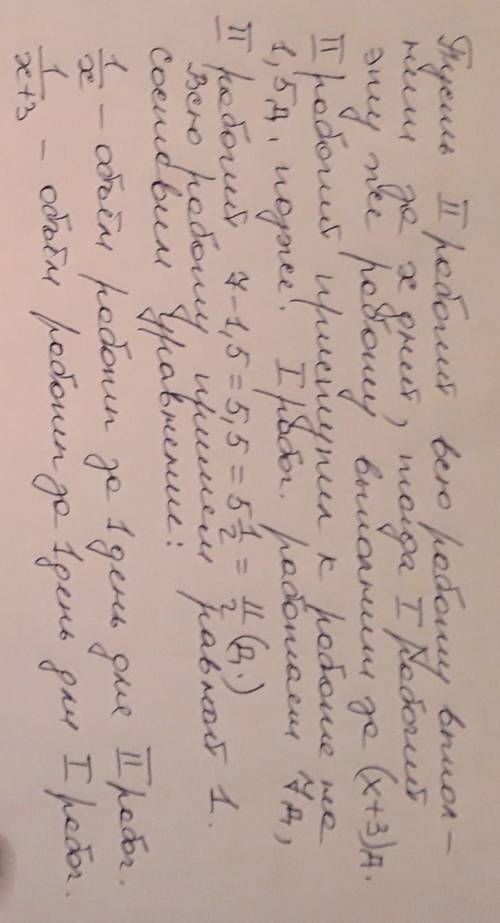 Пусть II рабочий всю работу выпол-
нит за x дней, тогда I рабочий
эту же работу выполнит за (x+3)д.
II рабочий приступил к работе на
1,5д. позже. I рабоч. работает 7д,
II рабочий 7-1,5=5,5=5 1/2 = 11/2 (д.)
Всю работу примем равной 1.
Составим уравнение:
1/x - объём работы за 1 день для II рабоч.
1/x+3 - объём работы за 1 день для I рабоч.